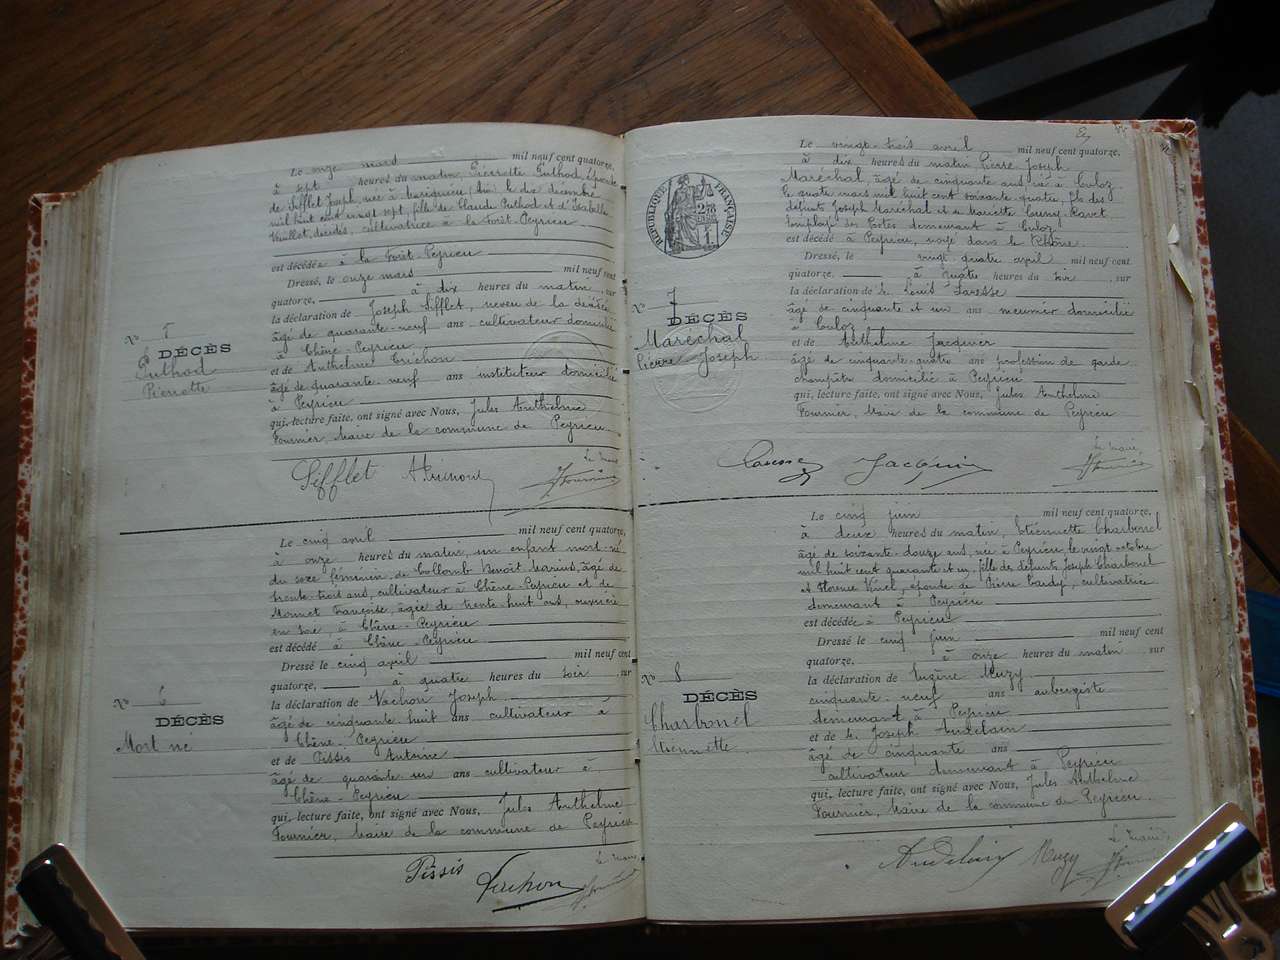 Le onze mars mil neuf cent quatorze,
à sept heures du matin, Pierrette Puthod, épouse
de Sifflet Joseph, née à (Ain) le dix décembre
mil huit cent vingt sept, fille de Claude Puthod et d'Isabelle
Vuillot, décédés, cultivatrice à la Forêt-Peyrieu
est décédée à la Forêt-Peyrieu
Dressé, le onze mars mil neuf cent
quatorze, à dix heures du matin, sur
la déclaration de Joseph Sifflet, neveu de la décédée
âgé de quarante-neuf ans cultivateur domicilié
à Chêne-Peyrieu
et de Anthelme Trichon
âgé de quarante-neuf ans instituteur domicilié
à Peyrieu
qui, lecture faite, ont signé avec Nous, Jules Anthelme
Fournier, Maire de la commune de Peyrieu
N° 5
DÉCÈS
Puthod
Pierrette
Sifflet
Le Maire,
Fournier
Le cinq avril mil neuf cent quatorze,
à onze heures du matin, un enfant mort-né
du sexe féminin, de Collomb Benoît Marius, âgé de
trente-trois ans, cultivateur à Chêne-Peyrieu et de
Monnet Françoise, âgée de trente-huit ans, ouvrière
en soie, à Chêne-Peyrieu
est décédé à Chêne-Peyrieu
Dressé le cinq avril mil neuf cent
quatorze, à quatre heures du soir, sur
la déclaration de Vachon Joseph
âgé de cinquante-huit ans cultivateur à
Chêne-Peyrieu
et de Pissis Antoine
âgé de quarante un ans cultivateur à
Chêne-Peyrieu
qui, lecture faite, ont signé avec Nous, Jules Anthelme
Fournier, Maire de la commune de Peyrieu
N° 6
DÉCÈS
Mort né
Pissis
Vachon
Le Maire,
Fournier
Le vingt-trois avril mil neuf cent quatorze,
à dix heures du matin, Pierre Joseph
Maréchal, âgé de cinquante ans, né à Culoz
le quatre mars mil huit cent soixante quatre, fils des
défunts Joseph Maréchal et de Mariette Ravet
employé des Postes demeurant à Culoz
est décédé à Peyrieu, noyé dans le Rhône
Dressé, le vingt-quatre avril mil neuf cent
quatorze, à quatre heures du soir, sur
la déclaration de Louis Laresse
âgé de cinquante et un ans meunier domicilié
à Culoz
et de Anthelme Jacquier
âgé de cinquante-quatre ans profession de garde
champêtre domicilié à Peyrieu
qui, lecture faite, ont signé avec Nous, Jules Anthelme
Fournier, Maire de la commune de Peyrieu
RÉPUBLIQUE FRANÇAISE
N° 7
DÉCÈS
Maréchal
Pierre Joseph
Laresse
Jacquier
Le Maire,
Fournier
Le cinq juin mil neuf cent quatorze,
à deux heures du matin, Etiennette Charbonel
âgée de soixante-douze ans, née à Peyrieu, le vingt octobre
mil huit cent quarante et un, fille des défunts Joseph Charbonel
et Florence Vinel, épouse de Pierre Tardy, cultivatrice
demeurant à Peyrieu
est décédée à Peyrieu
Dressé le cinq juin mil neuf cent
quatorze, à onze heures du matin, sur
la déclaration de Eugène Muzy
cinquante-neuf ans aubergiste
demeurant à Peyrieu
et de Joseph Andelain
âgé de cinquante ans
cultivateur demeurant à Peyrieu
qui, lecture faite, ont signé avec Nous, Jules Anthelme
Fournier, Maire de la commune de Peyrieu
N° 8
DÉCÈS
Charbonel
Etiennette
Muzy
Le Maire,
Fournier